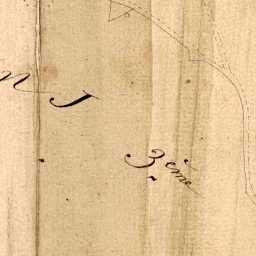 n J
3.eme